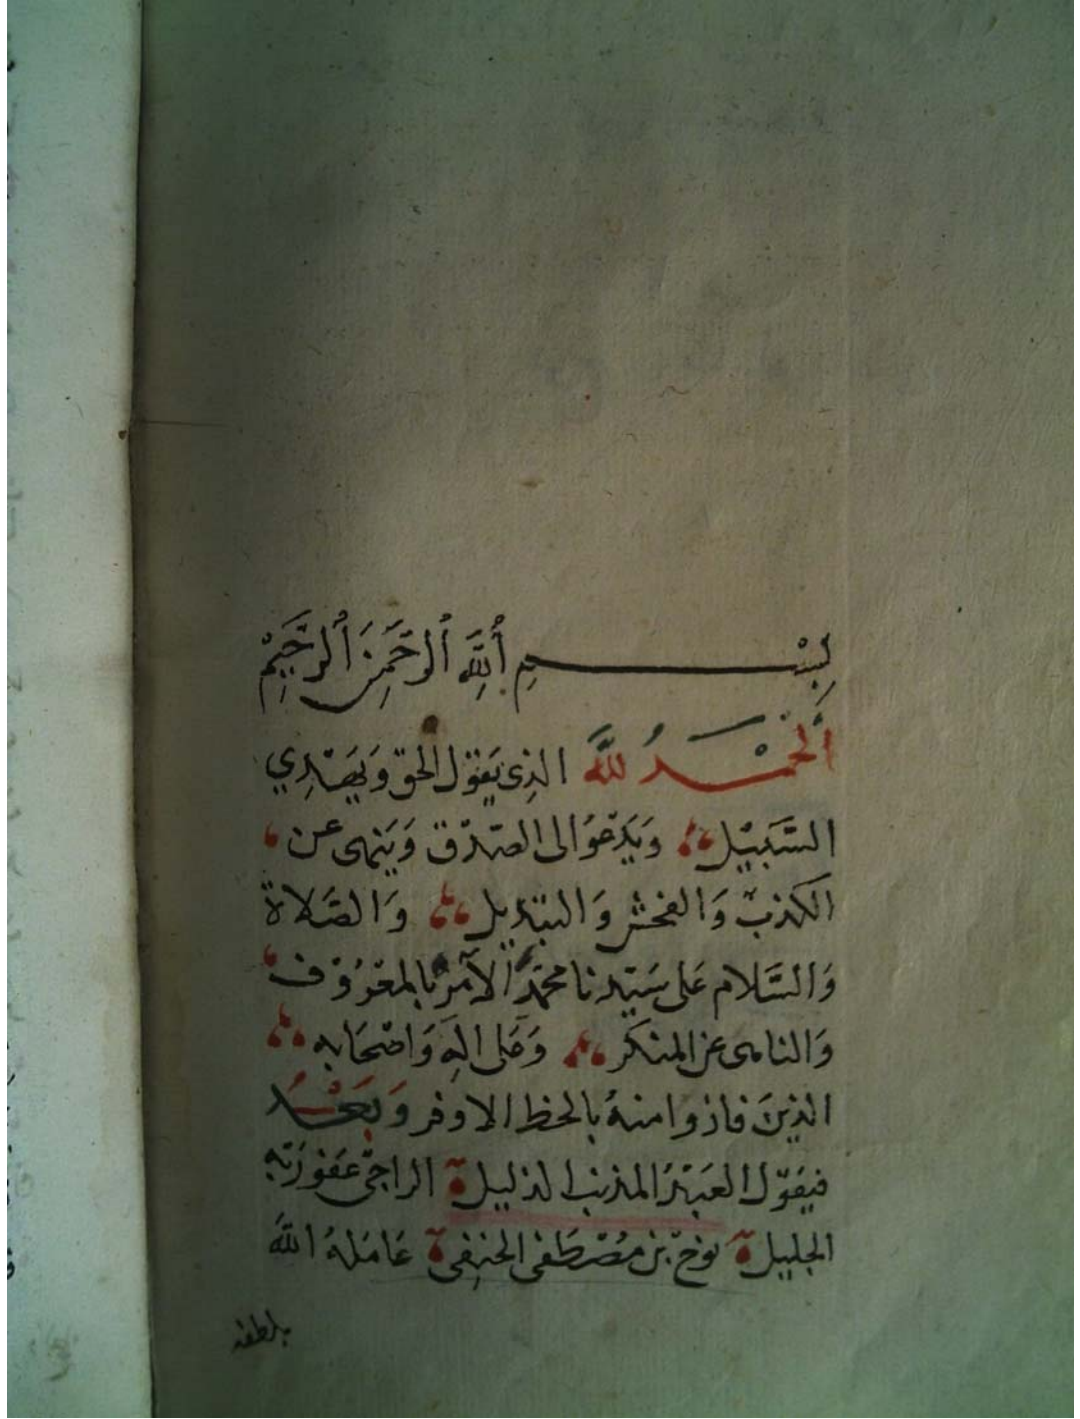 بِسْــــمِ اُللَّهِ اُلرَّحَمِنَ اُلرَّحَيِمْ
اَلْحَمْــدُ للَّه الذِى يَقوْل الحق وَيَهْدِي
السَّبِيْل وَيَدْعوُ الى الصّدْق وَيَنهى عن
الكذب وَالفحش وَالتبْديل وَالصَّلاة
وَالسَّلام عَلى سَيّدنا محمّد الآمْر بالمعْرُوْف
وَالناهى عن المنكر وَعَلى الهِ وَاصْحَابه
الذينَ فازوا منهُ بالحظ الاوفر وَبَعْــدُ
فيقوْل العَبْدُ المذنب الذليل الراجى عَفو رَبّه
الجليل نوْحْ بن مُصْطَفى الحنِفى عَامَلهُ اللّه
بلطفه